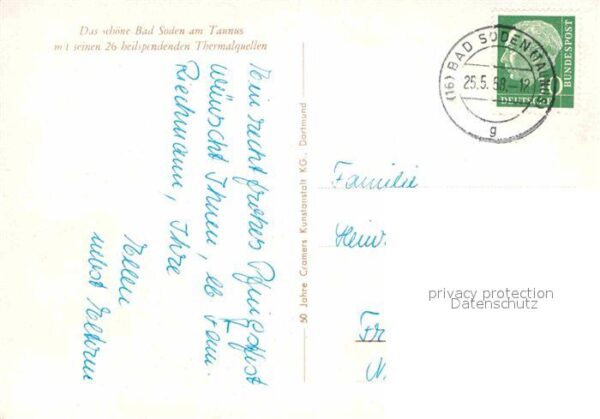 Das schöne Bad Soden am Taunus
mit seinen 26 heilspendenden Thermalquellen
Ein recht frohes Pfingstfest
wünscht Ihnen, lb Fam.
Riechmann, Ihre
Ellen
nebst Eltern
50 Jahre Cramers Kunstanstalt KG., Dortmund
(16) BAD SODEN (TAUNUS)
25.5.58.-12
g
10
DEUTSCHE
BUNDESPOST
Familie
Heinr.
Fr
N.
privacy protection
Datenschutz